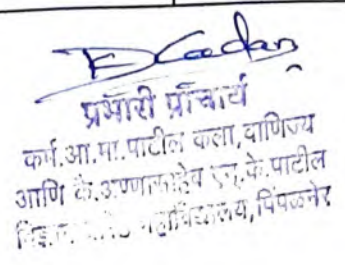 प्रभारी प्राचार्य
कर्म.आ.मा.पाटील कला,वाणिज्य
आणि कै.अण्णासाहेब एन्.के.पाटील
महाविद्यालय,पिंपळनेर